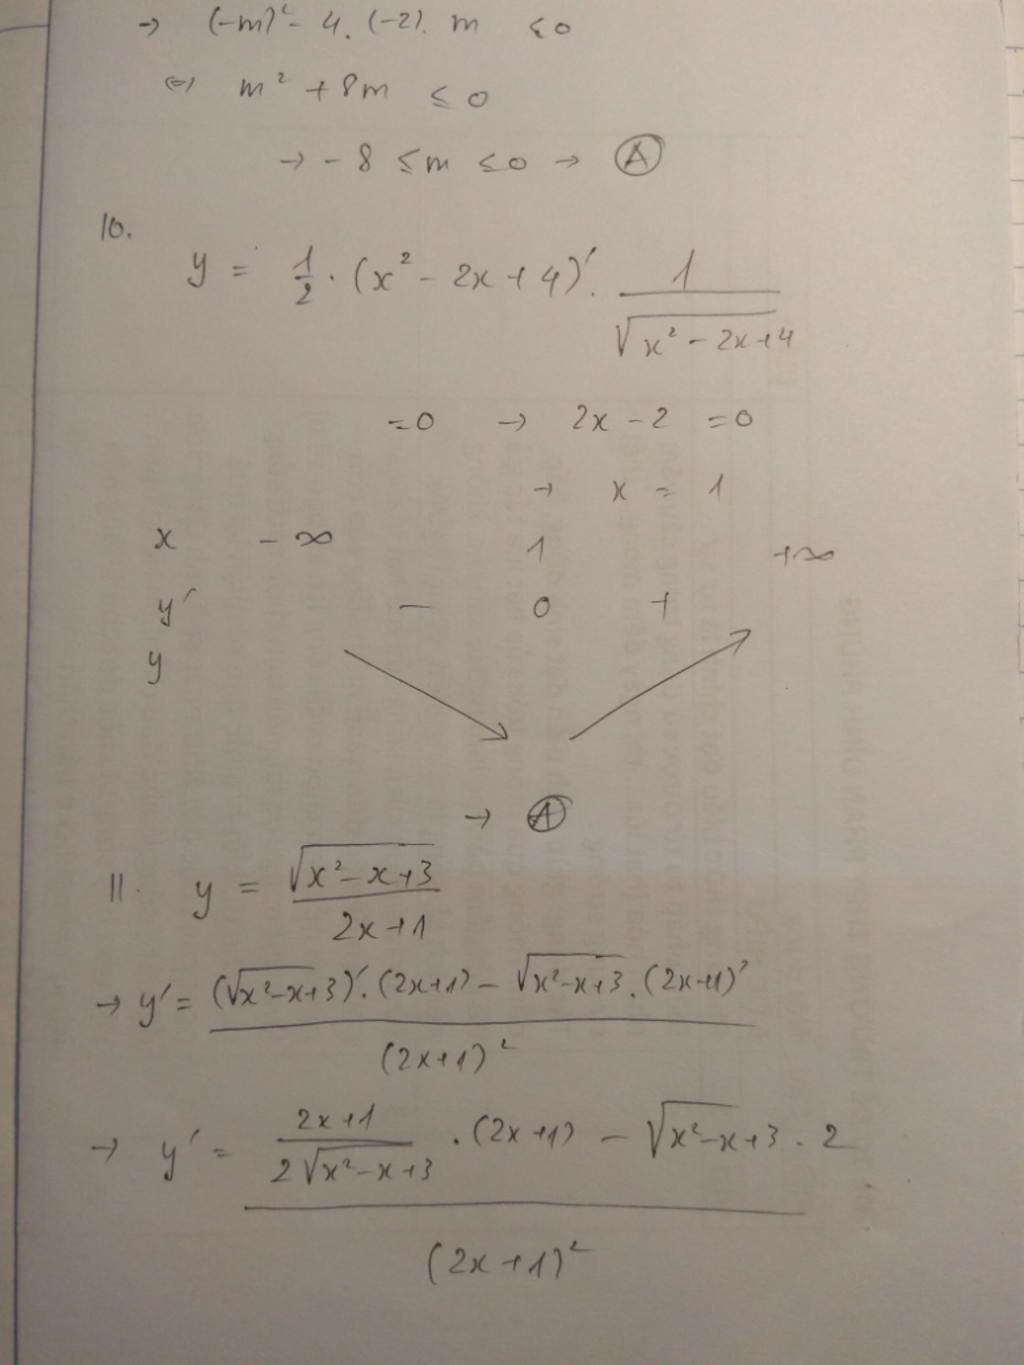 → (-m)² - 4. (-2). m ≤ 0
⇔ m² + 8m ≤ 0
→ - 8 ≤ m ≤ 0 → Ⓐ
10.
y = 1/2 . (x² - 2x + 4)' . 1/√(x² - 2x + 4)
= 0 → 2x - 2 = 0
→ x = 1
x - ∞ 1 +∞
y' - 0 +
y
→ Ⓐ
11. y = √(x² - x + 3) / (2x + 1)
→ y' = ((√(x² - x + 3))' . (2x + 1) - √(x² - x + 3) . (2x + 1)') / (2x + 1)²
→ y' = ((2x + 1)/(2√(x² - x + 3)) . (2x + 1) - √(x² - x + 3) . 2) / (2x + 1)²